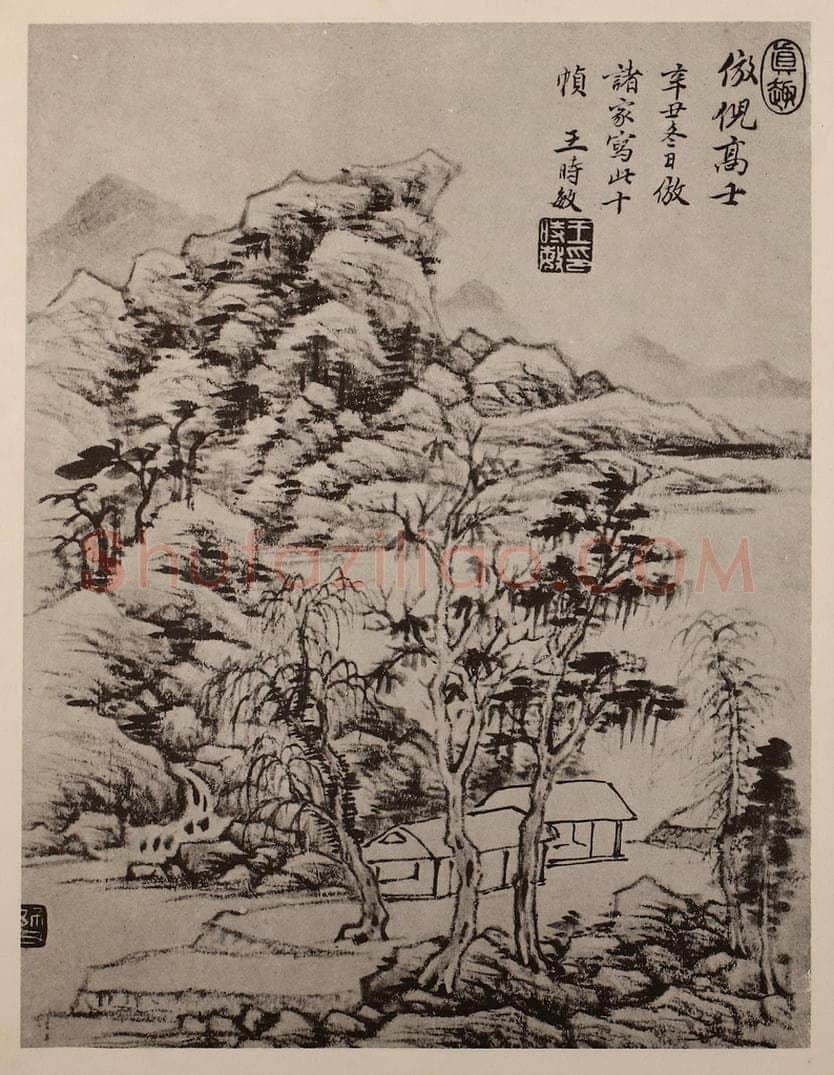 真趣
倣倪高士
辛丑冬日倣
諸家寫此十
幀 王時敏
王時敏印
Shufaziliao.COM